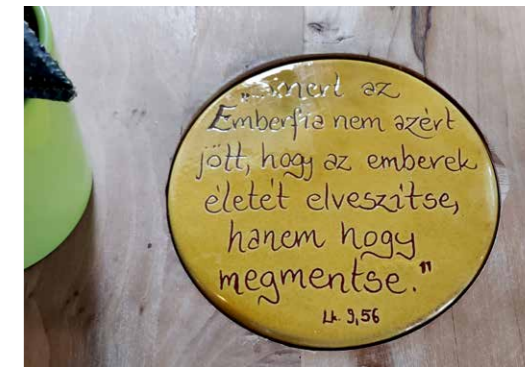 „...mert az
Emberfia nem azért
jött, hogy az emberek
életét elveszítse,
hanem hogy
megmentse."
Lk. 9,56